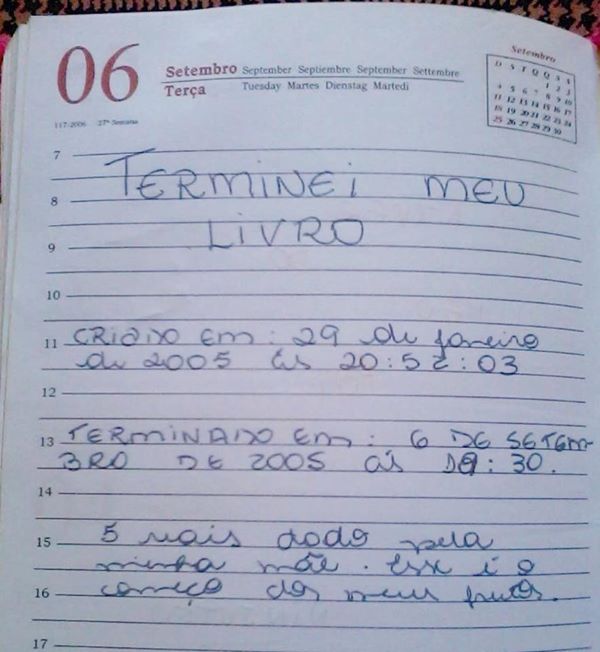 06
Setembro September Septiembre September Settembre
Terça Tuesday Martes Dienstag Martedi
Setembro
D S T Q Q S S
1 2 3
4 5 6 7 8 9 10
11 12 13 14 15 16 17
18 19 20 21 22 23 24
25 26 27 28 29 30
37ª Semana
7
TERMINEI MEU
8
LIVRO
9
10
11 CRIADO Em: 29 de janeiro
de 2005 às 20:52:03
12
13 TERMINADO Em: 6 DE SETEM-
BRO DE 2005 ÀS 19:30.
14
15 5 reais dado pela
minha mãe. Esse é o
16 começo dos meus frutos.
17